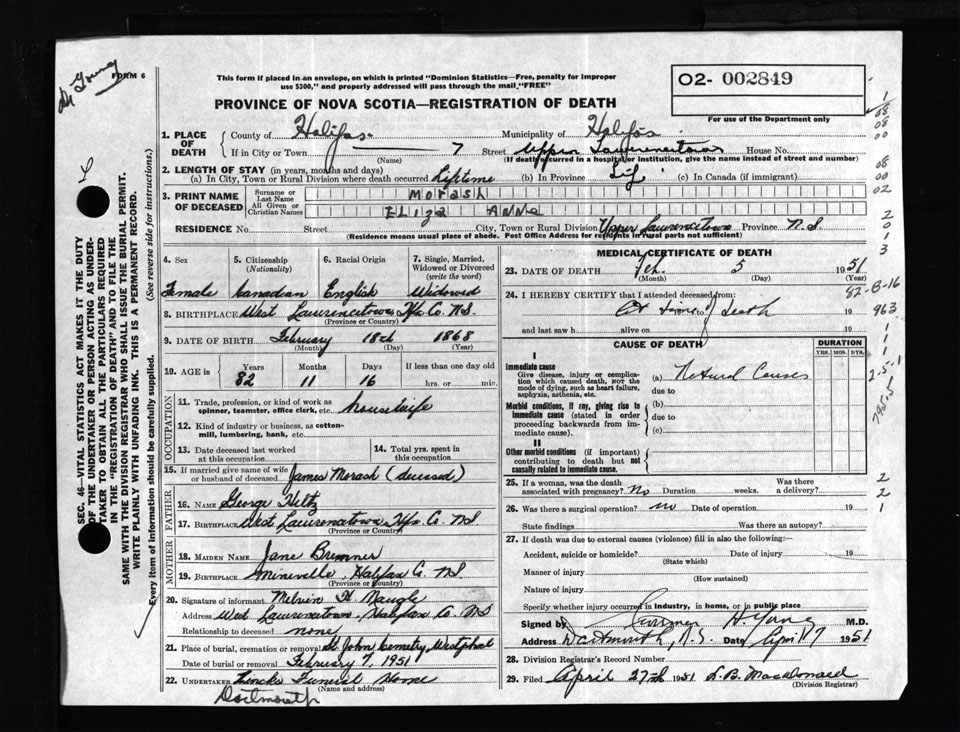 Dr Young
FORM 6
This form if placed in an envelope, on which is printed "Dominion Statistics—Free, penalty for improper
use $300," and properly addressed will pass through the mail "FREE"
PROVINCE OF NOVA SCOTIA—REGISTRATION OF DEATH
02- 002849
For use of the Department only
SEC. 46—VITAL STATISTICS ACT MAKES IT THE DUTY
OF THE UNDERTAKER OR PERSON ACTING AS UNDER-
TAKER TO OBTAIN ALL THE PARTICULARS REQUIRED
IN THE "REGISTRATION OF DEATH" AND TO FILE THE
SAME WITH THE DIVISION REGISTRAR WHO SHALL ISSUE THE BURIAL PERMIT.
WRITE PLAINLY WITH UNFADING INK. THIS IS A PERMANENT RECORD.
Every item of Information should be carefully supplied. (See reverse side for instructions.)
1. PLACE OF DEATH County of Halifax Municipality of Halifax
If in City or Town (Name) Street Upper Lawrencetown House No.
(If death occurred in a hospital or institution, give the name instead of street and number)
2. LENGTH OF STAY (in years, months and days)
(a) In City, Town or Rural Division where death occurred lifetime (b) In Province (c) In Canada (if immigrant)
3. PRINT NAME OF DECEASED Surname or Last Name Morash
All Given or Christian Names Eliza Anne
RESIDENCE No. Street City, Town or Rural Division Upper Lawrencetown Province N.S
(Residence means usual place of abode. Post Office Address for residents in rural parts not sufficient)
4. Sex 5. Citizenship (Nationality) 6. Racial Origin 7. Single, Married, Widowed or Divorced (write the word)
Female Canadian English Widowed
8. BIRTHPLACE West Lawrencetown Hfx Co. NS.
(Province or Country)
9. DATE OF BIRTH February 18th 1868
(Month) (Day) (Year)
10. AGE in Years Months Days If less than one day old
82 11 16 hrs. or min.
OCCUPATION
11. Trade, profession or kind of work as spinner, teamster, office clerk, etc. housewife
12. Kind of industry or business, as cotton-mill, lumbering, bank, etc.
13. Date deceased last worked at this occupation 14. Total yrs. spent in this occupation
15. If married give name of wife or husband of deceased James Morash (deceased)
FATHER
16. NAME George Hiltz
17. BIRTHPLACE West Lawrencetown Hfx. Co. NS.
(Province or Country)
MOTHER
18. MAIDEN NAME Jane Bremner
19. BIRTHPLACE Mineville, Halifax Co. NS.
(Province or Country)
20. Signature of informant Melvin H. Naugle
Address West Lawrencetown, Halifax Co. NS
Relationship to deceased none
21. Place of burial, cremation or removal St John Cemetry, Westphal
Date of burial or removal February 7, 1951
22. UNDERTAKER Funeral Home
(Name and address)
Dartmouth
MEDICAL CERTIFICATE OF DEATH
23. DATE OF DEATH Feb. 5 1951
(Month) (Day) (Year)
24. I HEREBY CERTIFY that I attended deceased from:
At time of death 19
and last saw h alive on 19
CAUSE OF DEATH
DURATION
YRS. MOS. DYS.
I
Immediate cause
Give disease, injury or complication which caused death, NOT the mode of dying, such as heart failure, asphyxia, asthenia, etc.
(a) Natural Causes
due to
Morbid conditions, if any, giving rise to immediate cause (stated in order proceeding backwards from immediate cause).
(b)
due to
(c)
II
Other morbid conditions (if important) contributing to death but not causally related to immediate cause.
25. If a woman, was the death associated with pregnancy? No Duration weeks. Was there a delivery?
26. Was there a surgical operation? no Date of operation 19
State findings Was there an autopsy?
27. If death was due to external causes (violence) fill in also the following:
Accident, suicide or homicide? Date of injury 19
(State which)
Manner of injury
(How sustained)
Nature of injury
Specify whether injury occurred in industry, in home, or in public place
Signed by H Young M.D.
Address Dartmouth, N.S. Date April 17 1951
28. Division Registrar's Record Number
29. Filed April 27th 1951 L. B. Macdonald
(Division Registrar)
1
08
08
00
08
00
02
2
0
1
3
82-B-16
963
1
1
1
2-5-1
795.5
2
2
1